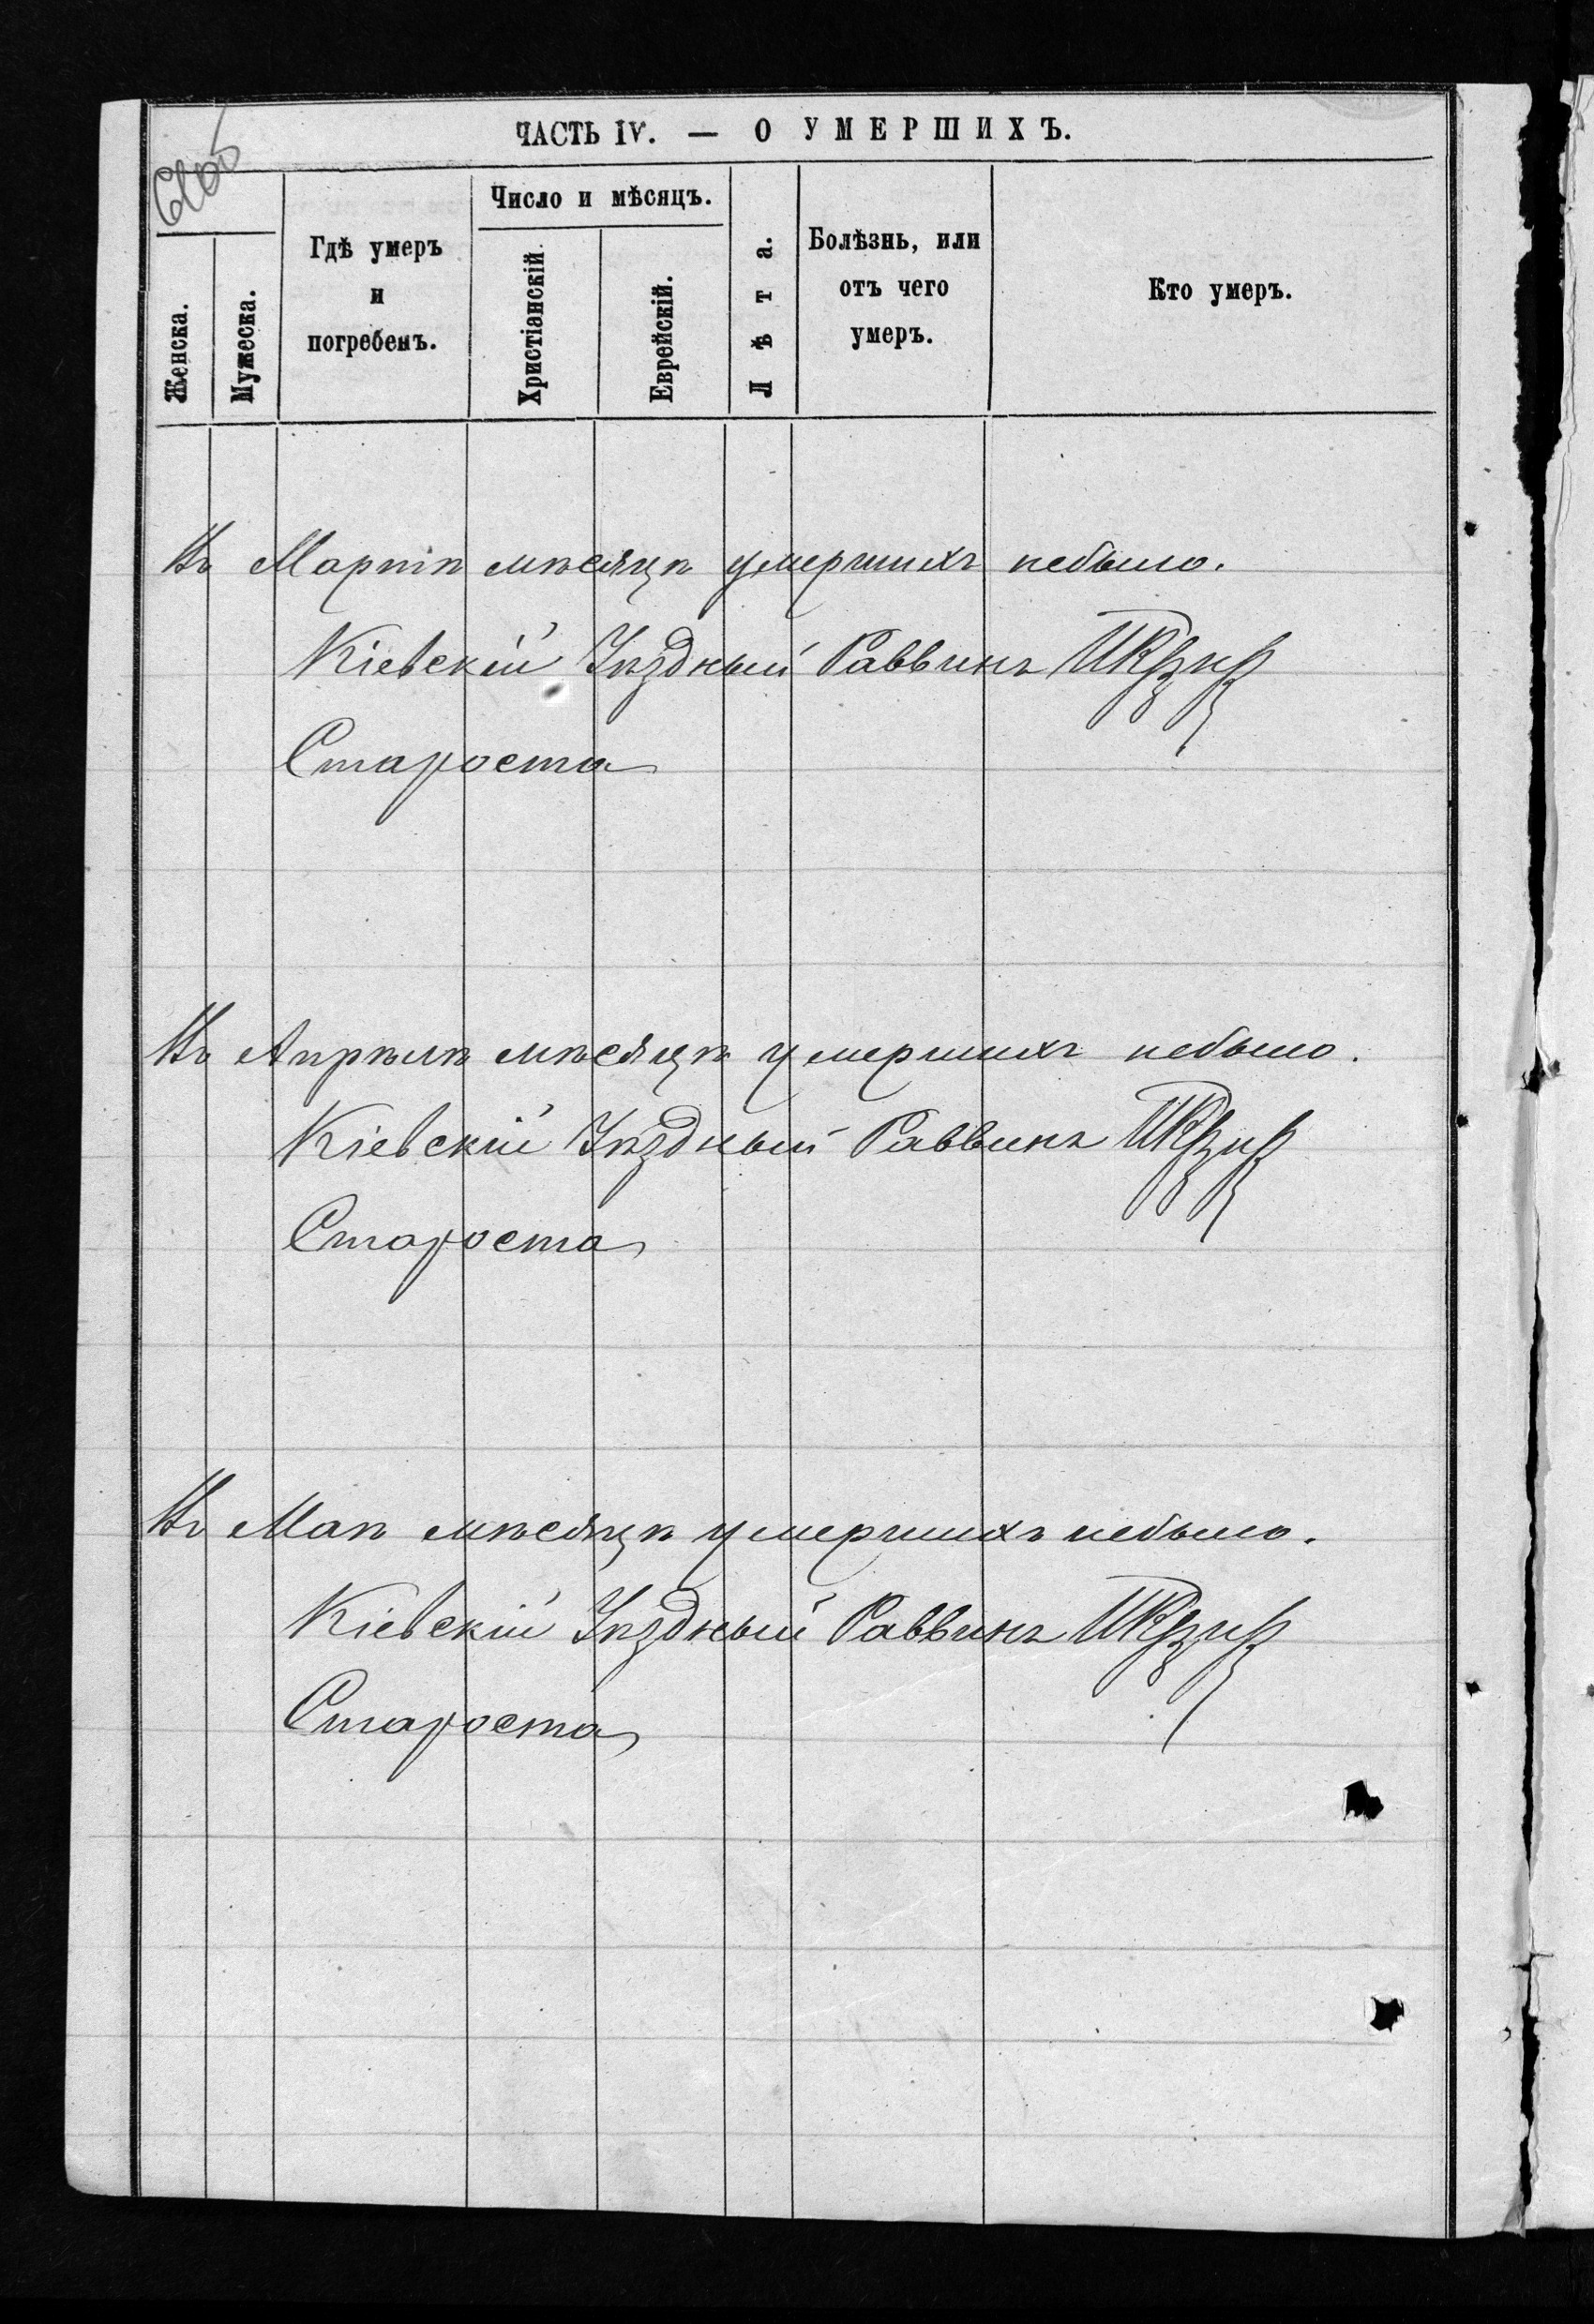 ЧАСТЬ IV. — О УМЕРШИХЪ.
Женска.
Мужеска.
Гдѣ умеръ
и
погребенъ.
Число и мѣсяцъ.
Христіанскій.
Еврейскій.
Лѣта.
Болѣзнь, или
отъ чего
умеръ.
Кто умеръ.
Въ Мартѣ мѣсяцѣ умершихъ небыло.
Кіевскій Уѣздный Раввинъ
Староста
Въ Апрѣлѣ мѣсяцѣ умершихъ небыло.
Кіевскій Уѣздный Раввинъ
Староста
Въ Маѣ мѣсяцѣ умершихъ небыло.
Кіевскій Уѣздный Раввинъ
Староста